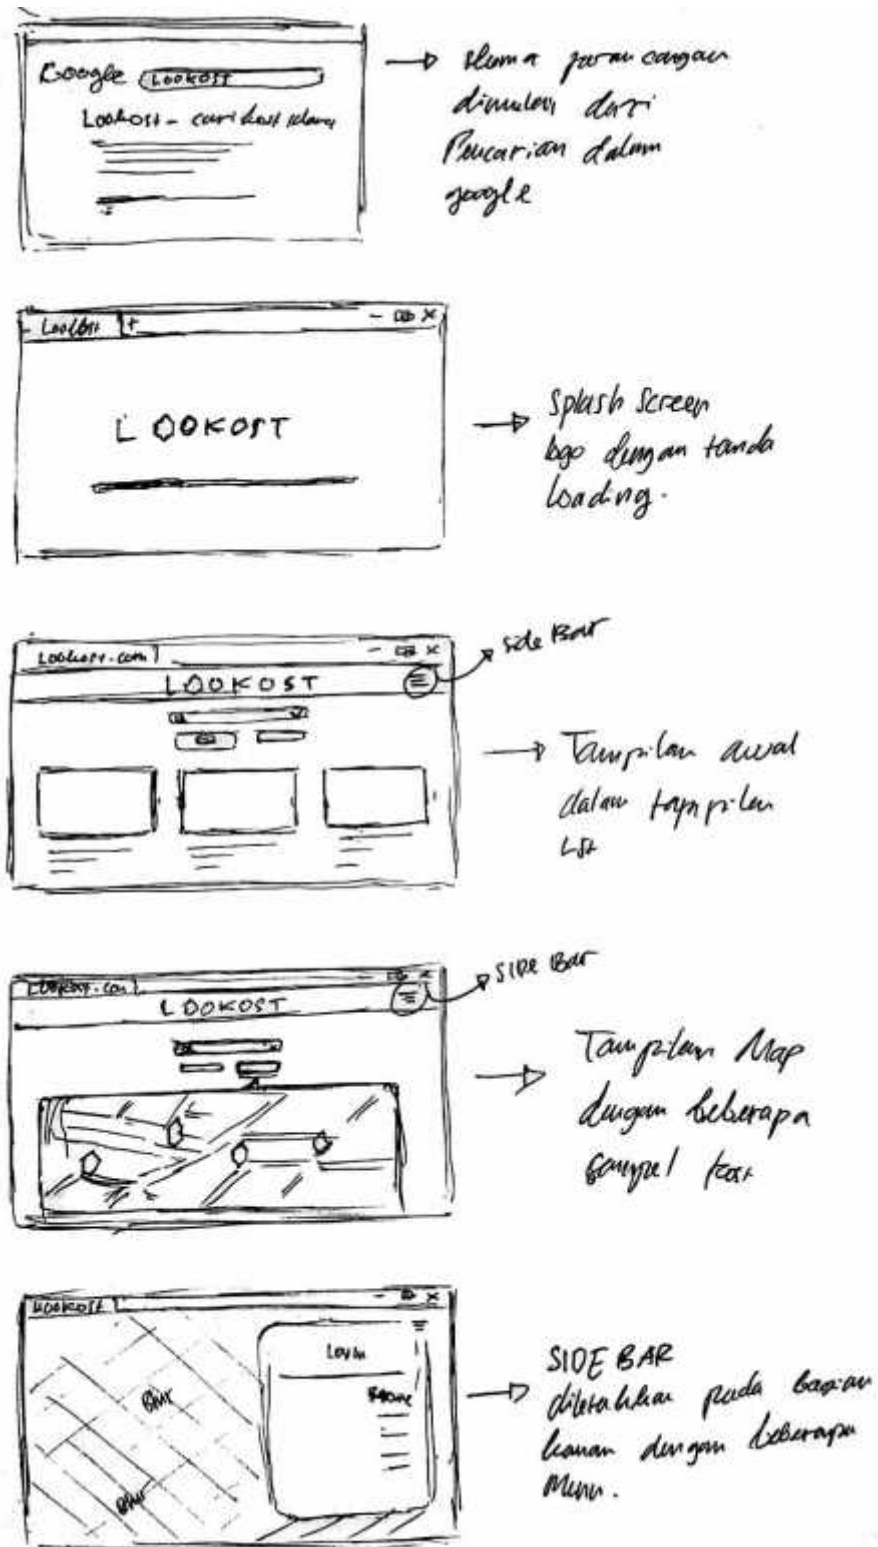 Google LOOKOST
Lookost - cari kost
dimulai dari
Pencarian dalam
google
Lookost +
LOOKOST
Splash Screen
logo dengan tanda
loading.
Lookost.com
LOOKOST
side Bar
Tampilan awal
dalam tampilan
List
LOOKOST
SIDE Bar
Tampilan Map
dengan beberapa
sampel kost
LOOKOST
Login
Home
Blur
Blur
SIDE BAR
diletakkan pada bagian
kanan dengan beberapa
Menu.